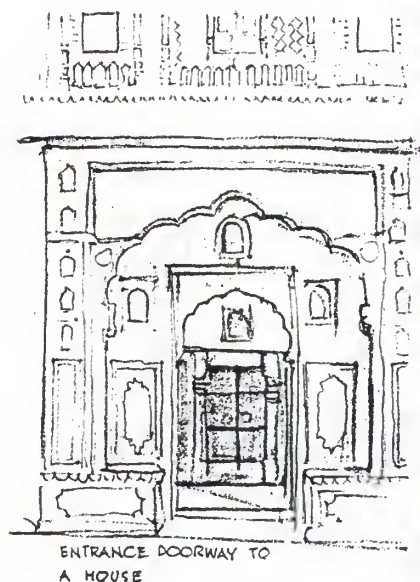 ENTRANCE DOORWAY TO
A HOUSE